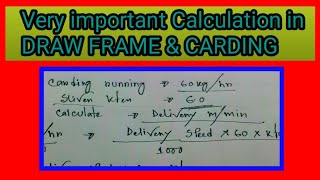 Very important Calculation in
DRAW FRAME & CARDING
Carding running → 60kg/hr
Sliver kten → 6.0
Calculate → Delivery m/min
/hr → Delivery Speed × 60 × k
1000